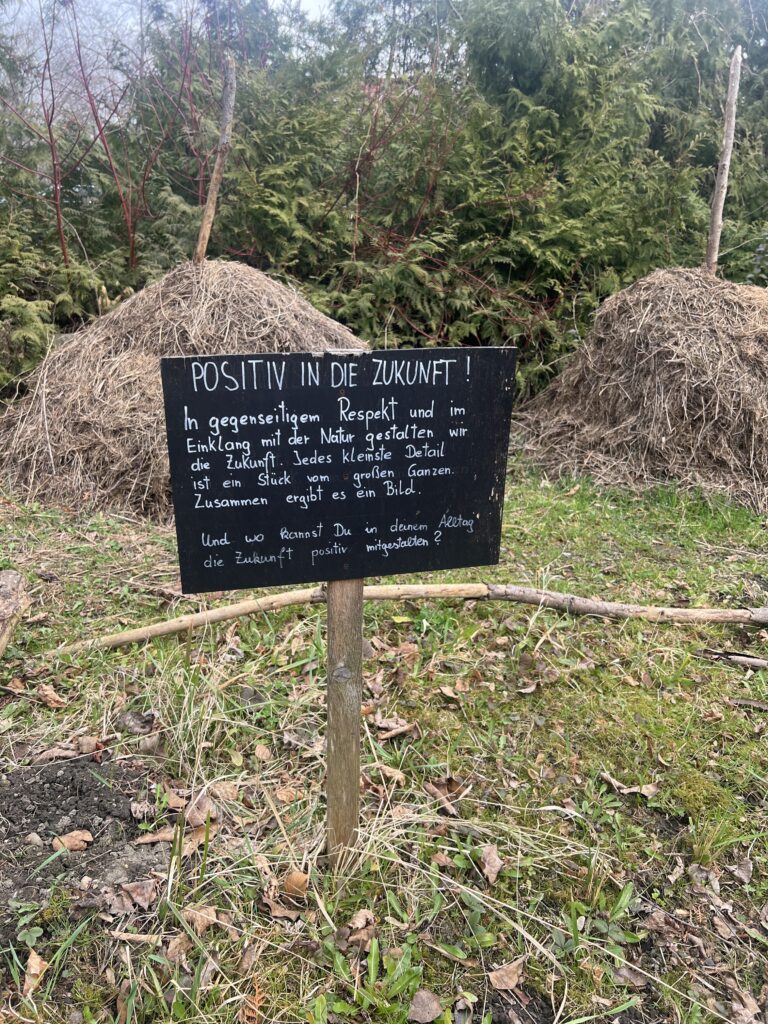 POSITIV IN DIE ZUKUNFT !
In gegenseitigem Respekt und im
Einklang mit der Natur gestalten wir
die Zukunft. Jedes kleinste Detail
ist ein Stück vom großen Ganzen.
Zusammen ergibt es ein Bild.
Und wo kannst Du in deinem Alltag
die Zukunft positiv mitgestalten?